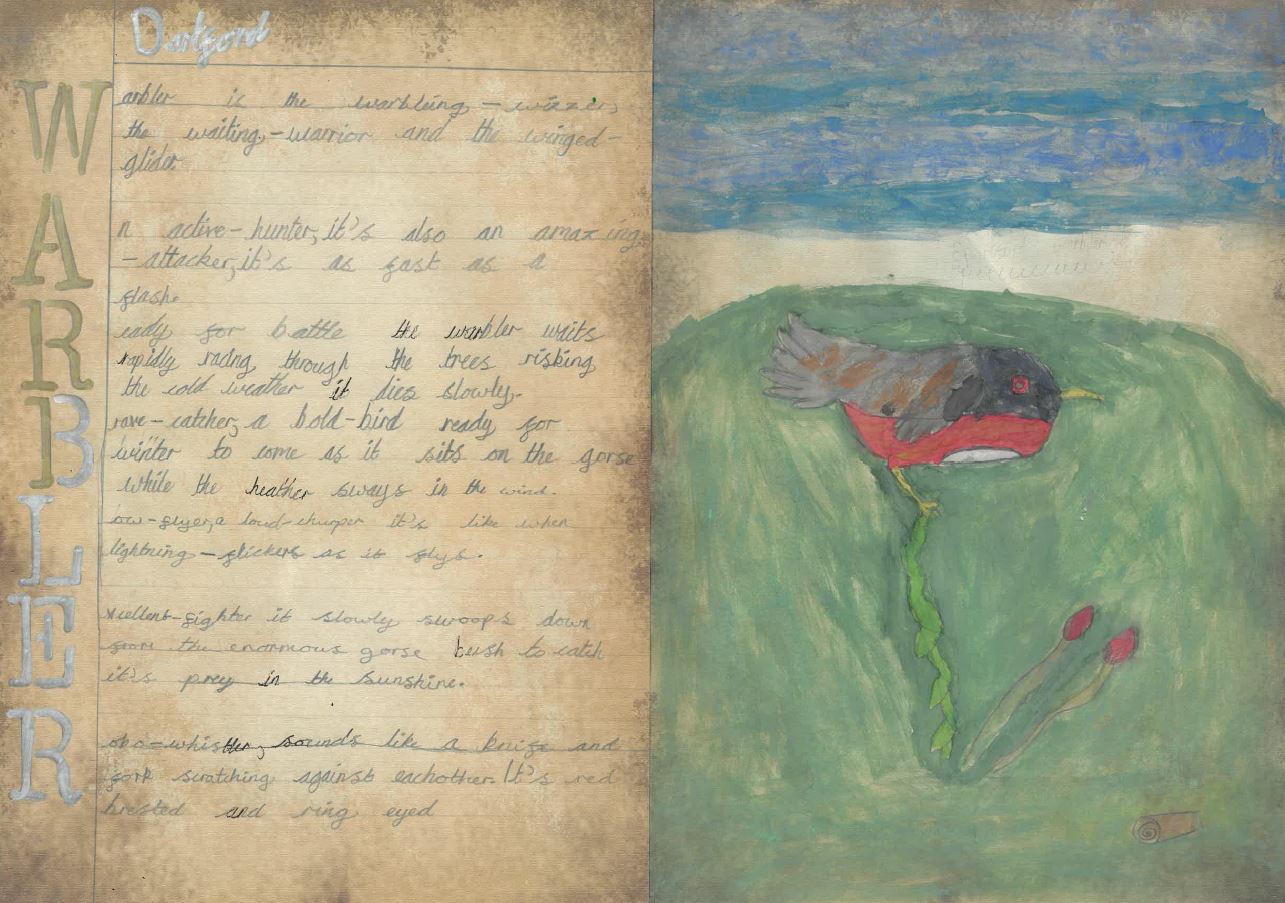 Dartford
WARBLER
arbler is the warbleing-wizzer,
the waiting-warrior and the winged-
glider.
n active-hunter, it's also an amazing
-attacker, it's as fast as a
flash.
eady for battle the warbler waits
rapidly racing through the trees risking
the cold weather it dies slowly.
rave-catcher, a bold-bird ready for
winter to come as it sits on the gorse
while the heather sways in the wind.
ow-flyer, a loud-chirper it's like when
lightning-flickers as it flys.
xcellent-fighter it slowly swoops down
from the enormous gorse bush to catch
it's prey in the sunshine.
obo-whistler, sounds like a knife and
fork scratching against eachother. It's red
brested and ring eyed